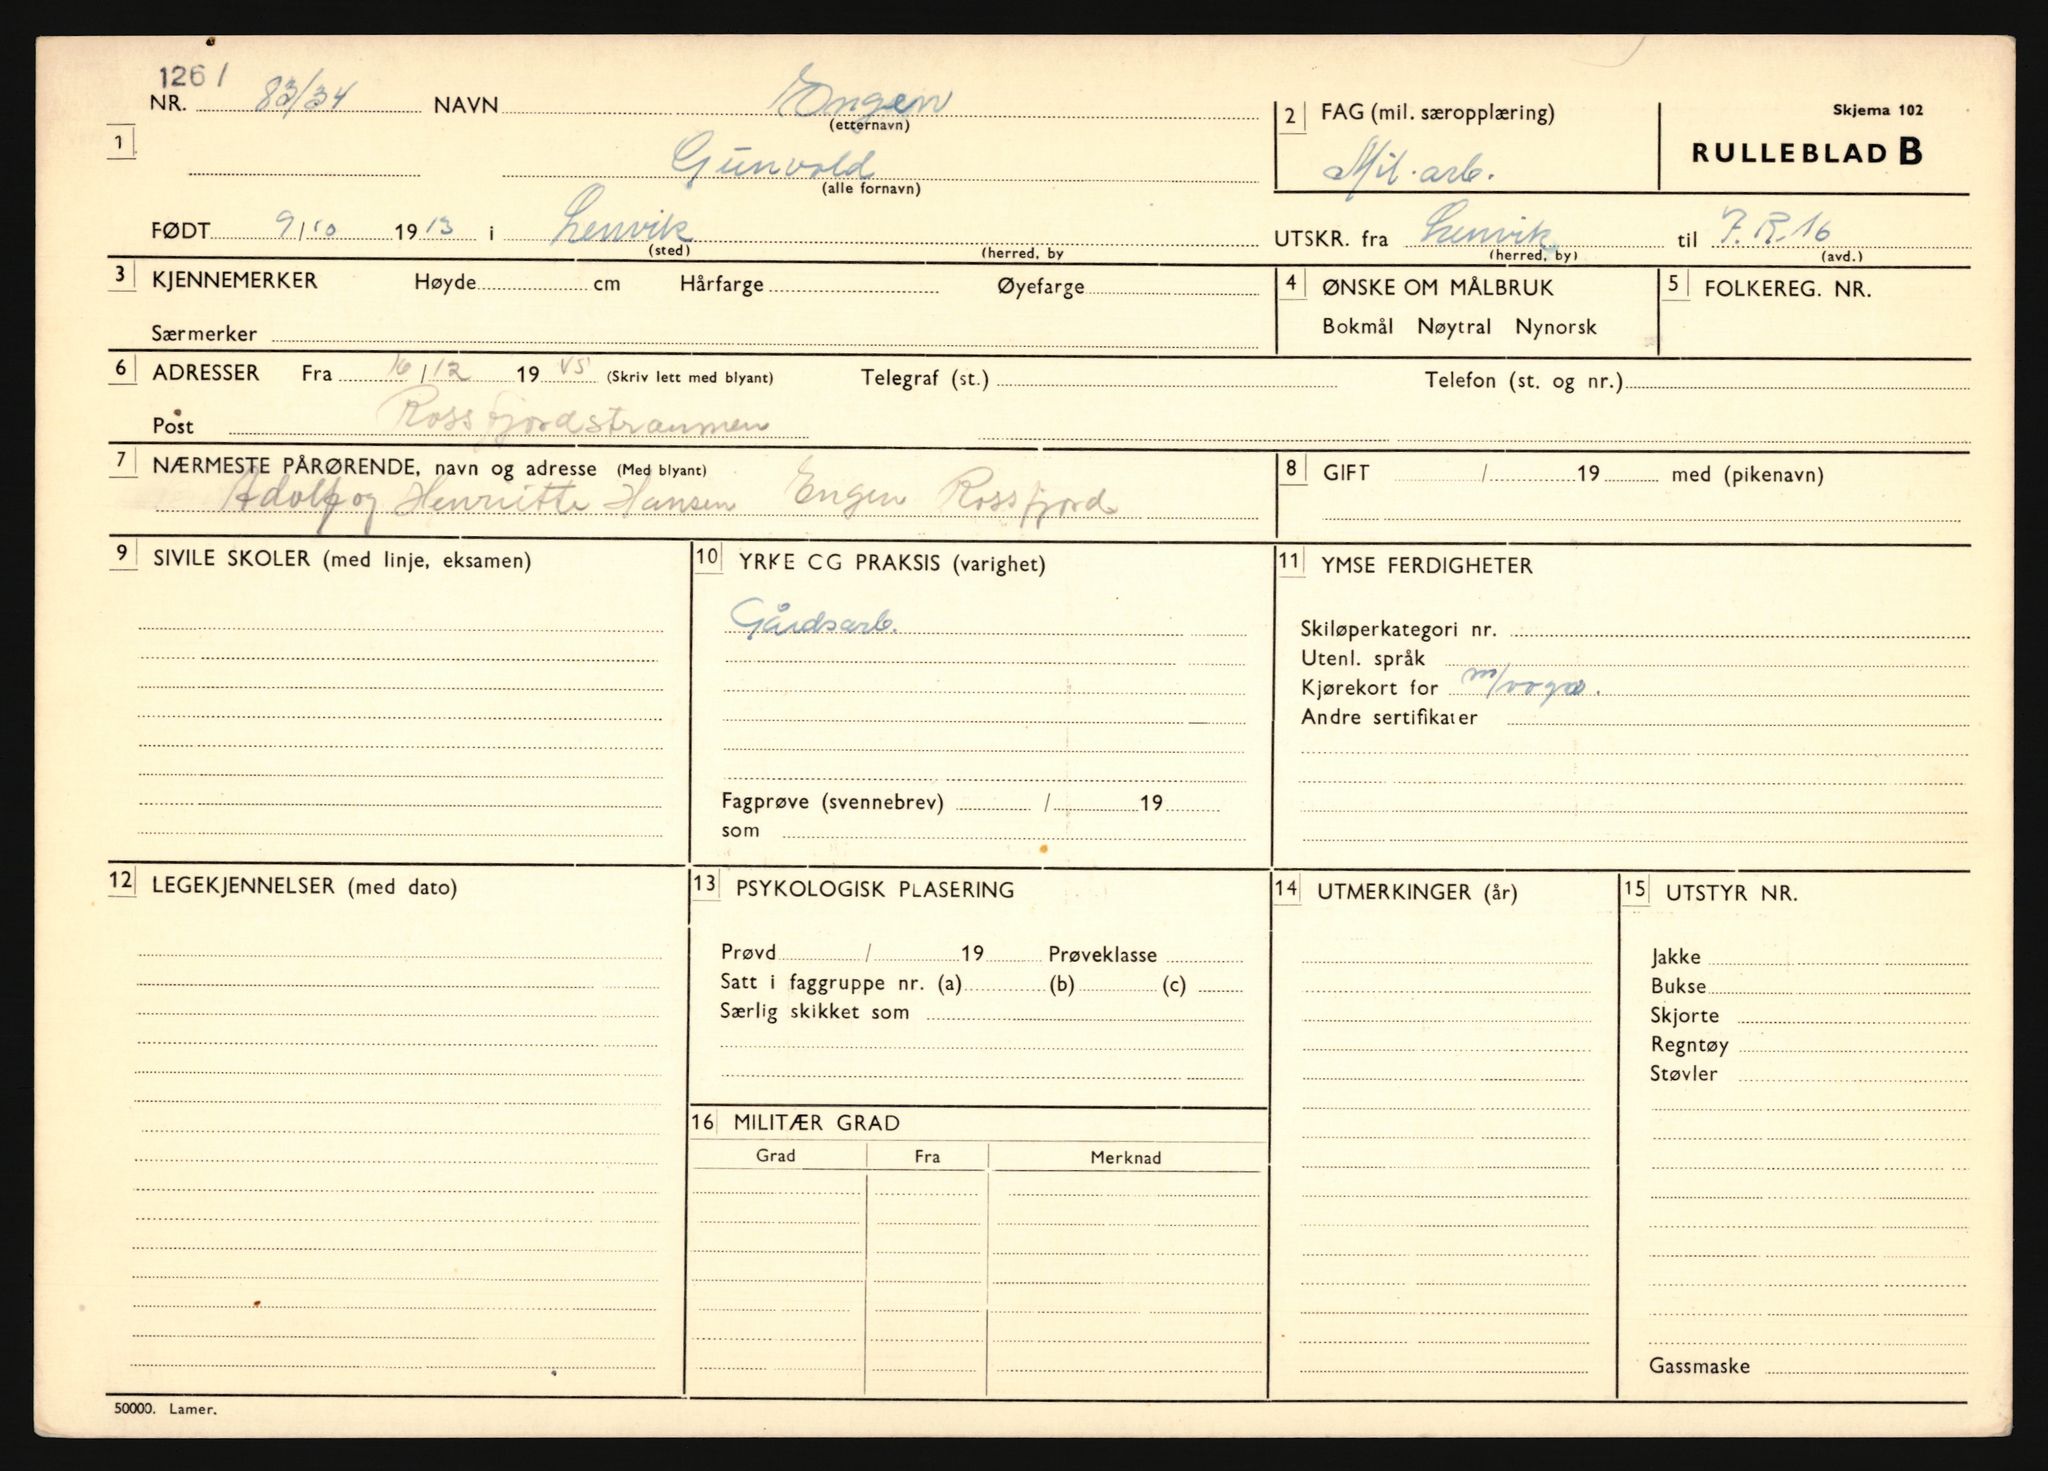 1261
NR. 83/34 NAVN Engen
(etternavn)
1
Gunvald
(alle fornavn)
2 FAG (mil. særopplæring)
Mil. arb.
Skjema 102
RULLEBLAD B
FØDT 9/10 1913 i Lenvik
(sted) (herred, by
UTSKR. fra Lenvik til I.R. 16
(herred, by) (avd.)
3 KJENNEMERKER Høyde cm Hårfarge Øyefarge
Særmerker
4 ØNSKE OM MÅLBRUK
Bokmål Nøytral Nynorsk
5 FOLKEREG. NR.
6 ADRESSER Fra 16/12 1945 (Skriv lett med blyant) Telegraf (st.) Telefon (st. og nr.)
Post Rossfjordstraumen
7 NÆRMESTE PÅRØRENDE, navn og adresse (Med blyant)
Adolf og Henriette Hansen Engen Rossfjord
8 GIFT / 19 med (pikenavn)
9 SIVILE SKOLER (med linje, eksamen)
10 YRKE CG PRAKSIS (varighet)
Gårdsarb.
Fagprøve (svennebrev) / 19
som
11 YMSE FERDIGHETER
Skiløperkategori nr.
Utenl. språk
Kjørekort for m/vogn.
Andre sertifikater
12 LEGEKJENNELSER (med dato)
13 PSYKOLOGISK PLASERING
Prøvd / 19 Prøveklasse
Satt i faggruppe nr. (a) (b) (c)
Særlig skikket som
14 UTMERKINGER (år)
15 UTSTYR NR.
Jakke
Bukse
Skjorte
Regntøy
Støvler
Gassmaske
16 MILITÆR GRAD
Grad Fra Merknad
50000. Lamer.